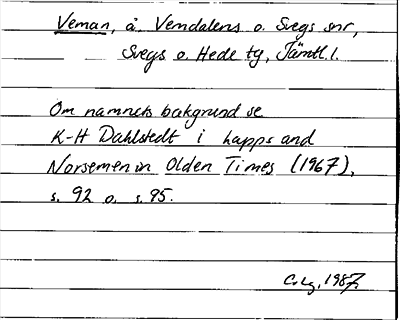 Veman, å. Vemdalens o. Svegs snr,
Svegs o. Hede tg, Jämtl. l.
Om namnets bakgrund se
K-H Dahlstedt i Lapps and
Norsemen in Olden Times (1967),
s. 92 o. s. 95.
1987.